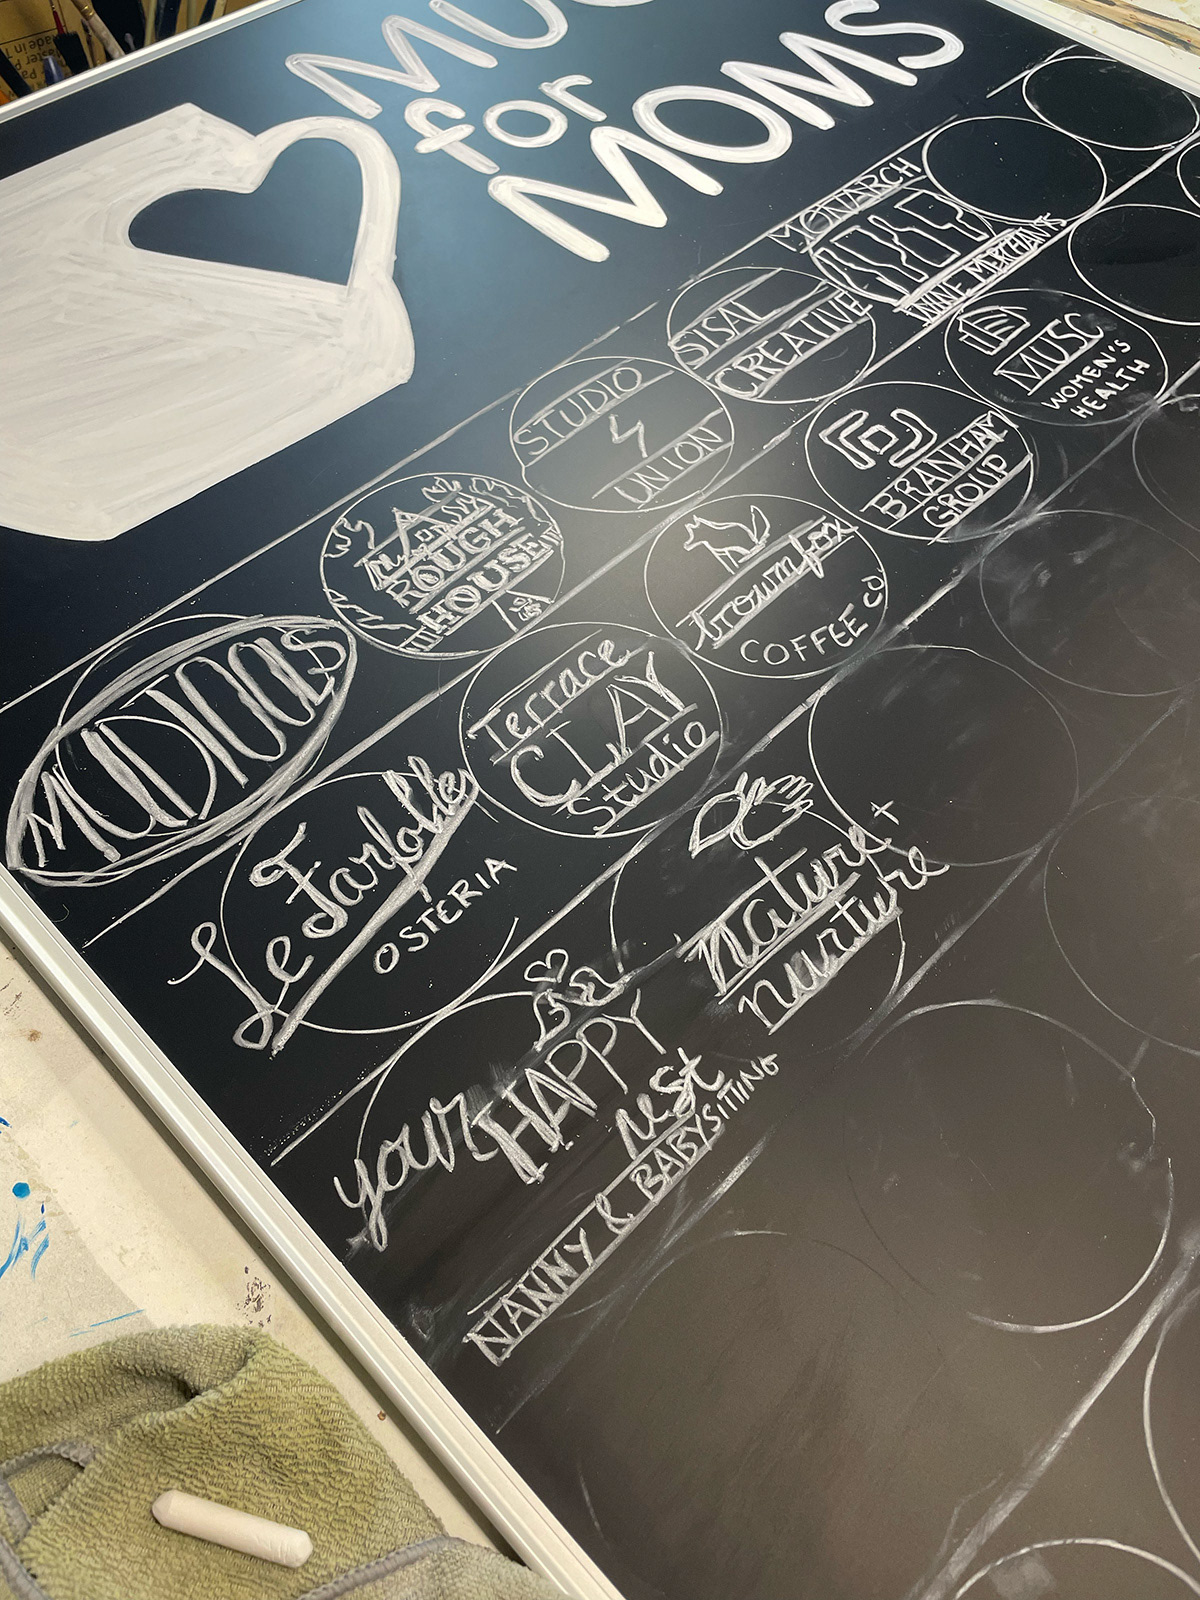 for
MOMS
MONARCH
WINE MERCHANTS
SISAL
CREATIVE
STUDIO
UNION
ROUGH
HOUSE
MUDTOOLS
MUSC
WOMEN'S
HEALTH
BRANHAM
GROUP
brownfox
COFFEE CO
Terrace
CLAY
Studio
Le Farfalle
OSTERIA
nature +
nurture
your HAPPY
nest
NANNY & BABYSITTING